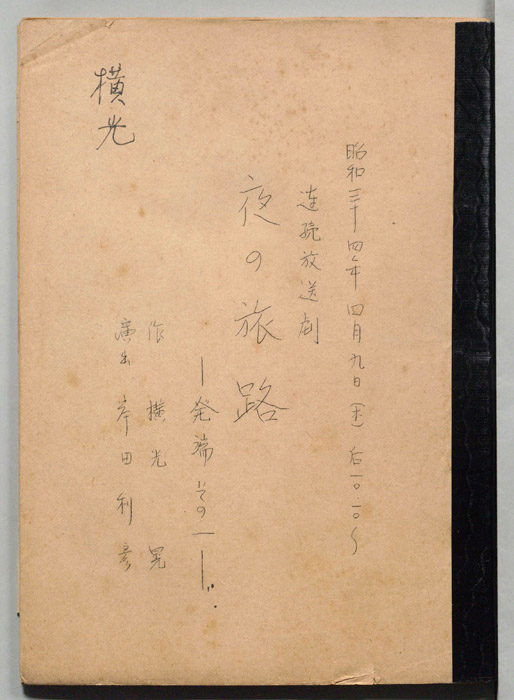 昭和三十四年四月九日(木)后一〇・一〇〜
連続放送劇
夜の旅路
―発端その一―
作 横光 晃
演出 岸田利彦
横光